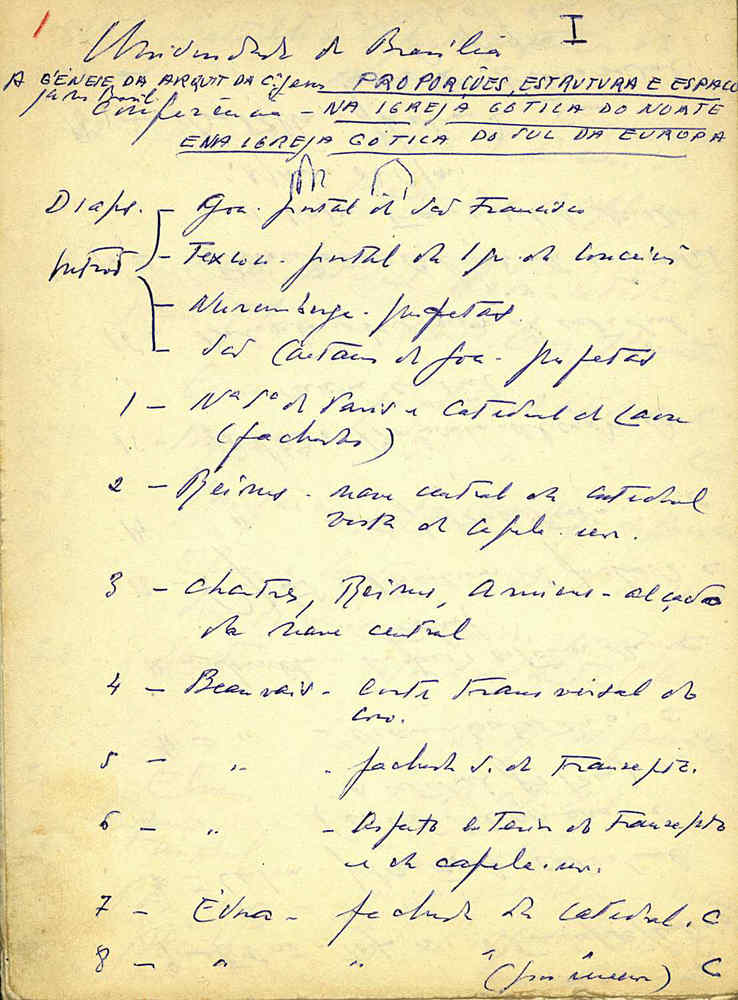 I
Universidade de Brasília
A GÉNESE DA ARQUIT DA PROPORÇÕES, ESTRUTURA E ESPAÇO
Conferência - NA IGREJA GÓTICA DO NORTE
E NA IGREJA GÓTICA DO SUL DA EUROPA
Diaps. - Goa. portal de São Francisco
- portal da Igr. da Conceição
- Nuremberga. púlpitos.
- São Caetano de Goa. púlpitos
1 - Nª Sª de Paris e Catedral de Laon
(fachadas)
2 - Reims. nave central da catedral
vista da capela-mor.
3 - Chartres, Reims, Amiens - alçado
da nave central
4 - Beauvais - corte transversal do
coro.
5 - " . fachada S. do transepto.
6 - " - Aspecto exterior do transepto
e da capela-mor.
7 - Évora - fachada da catedral. C
8 - " " " C